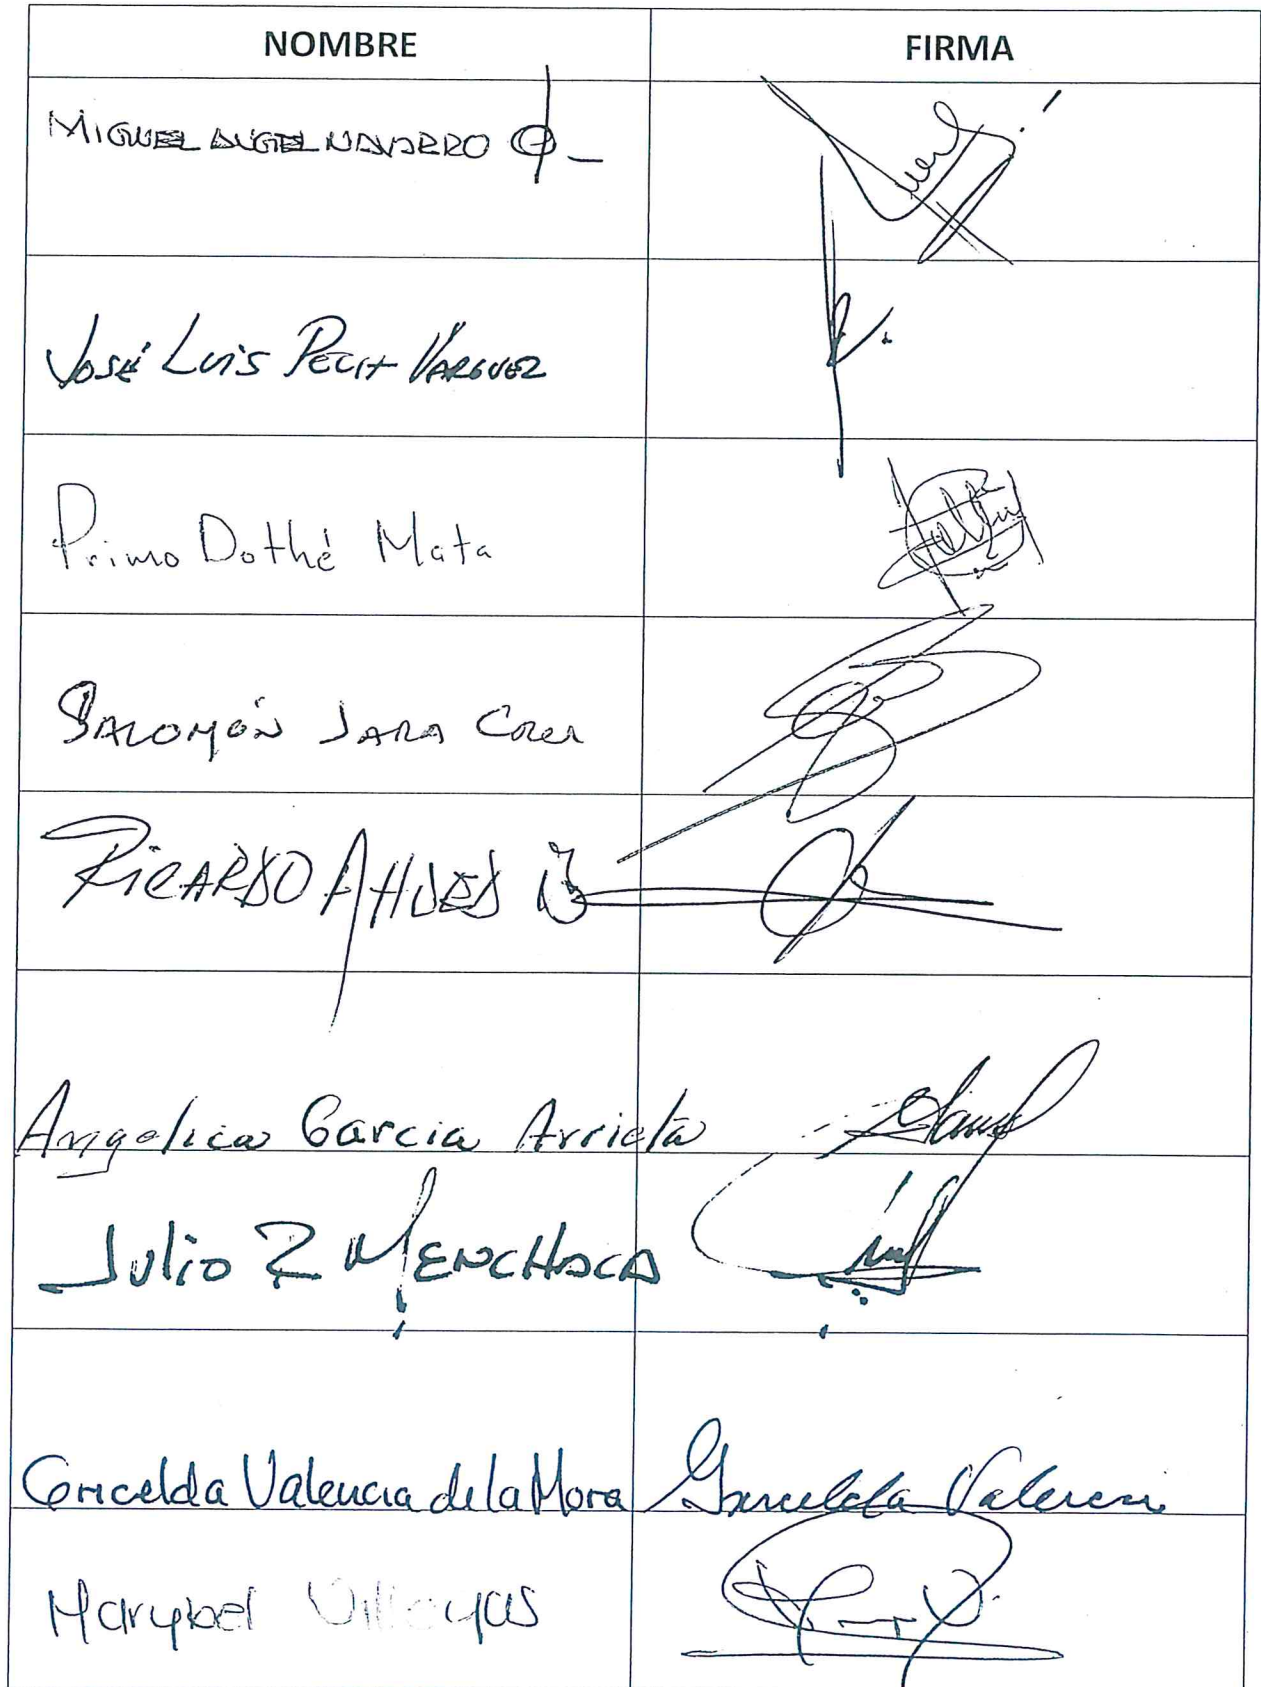 NOMBRE FIRMA
MIGUEL ANGEL NAVARRO Q_
JOSÉ LUIS PECH VÁRGUEZ
Primo Dothé Mata
SALOMÓN JARA CRUZ
RICARDO AHUED B
Angelica Garcia Arrieta
Julio R MENCHACA
Gricelda Valencia de la Mora Gricelda Valencia
Marybel Villegas